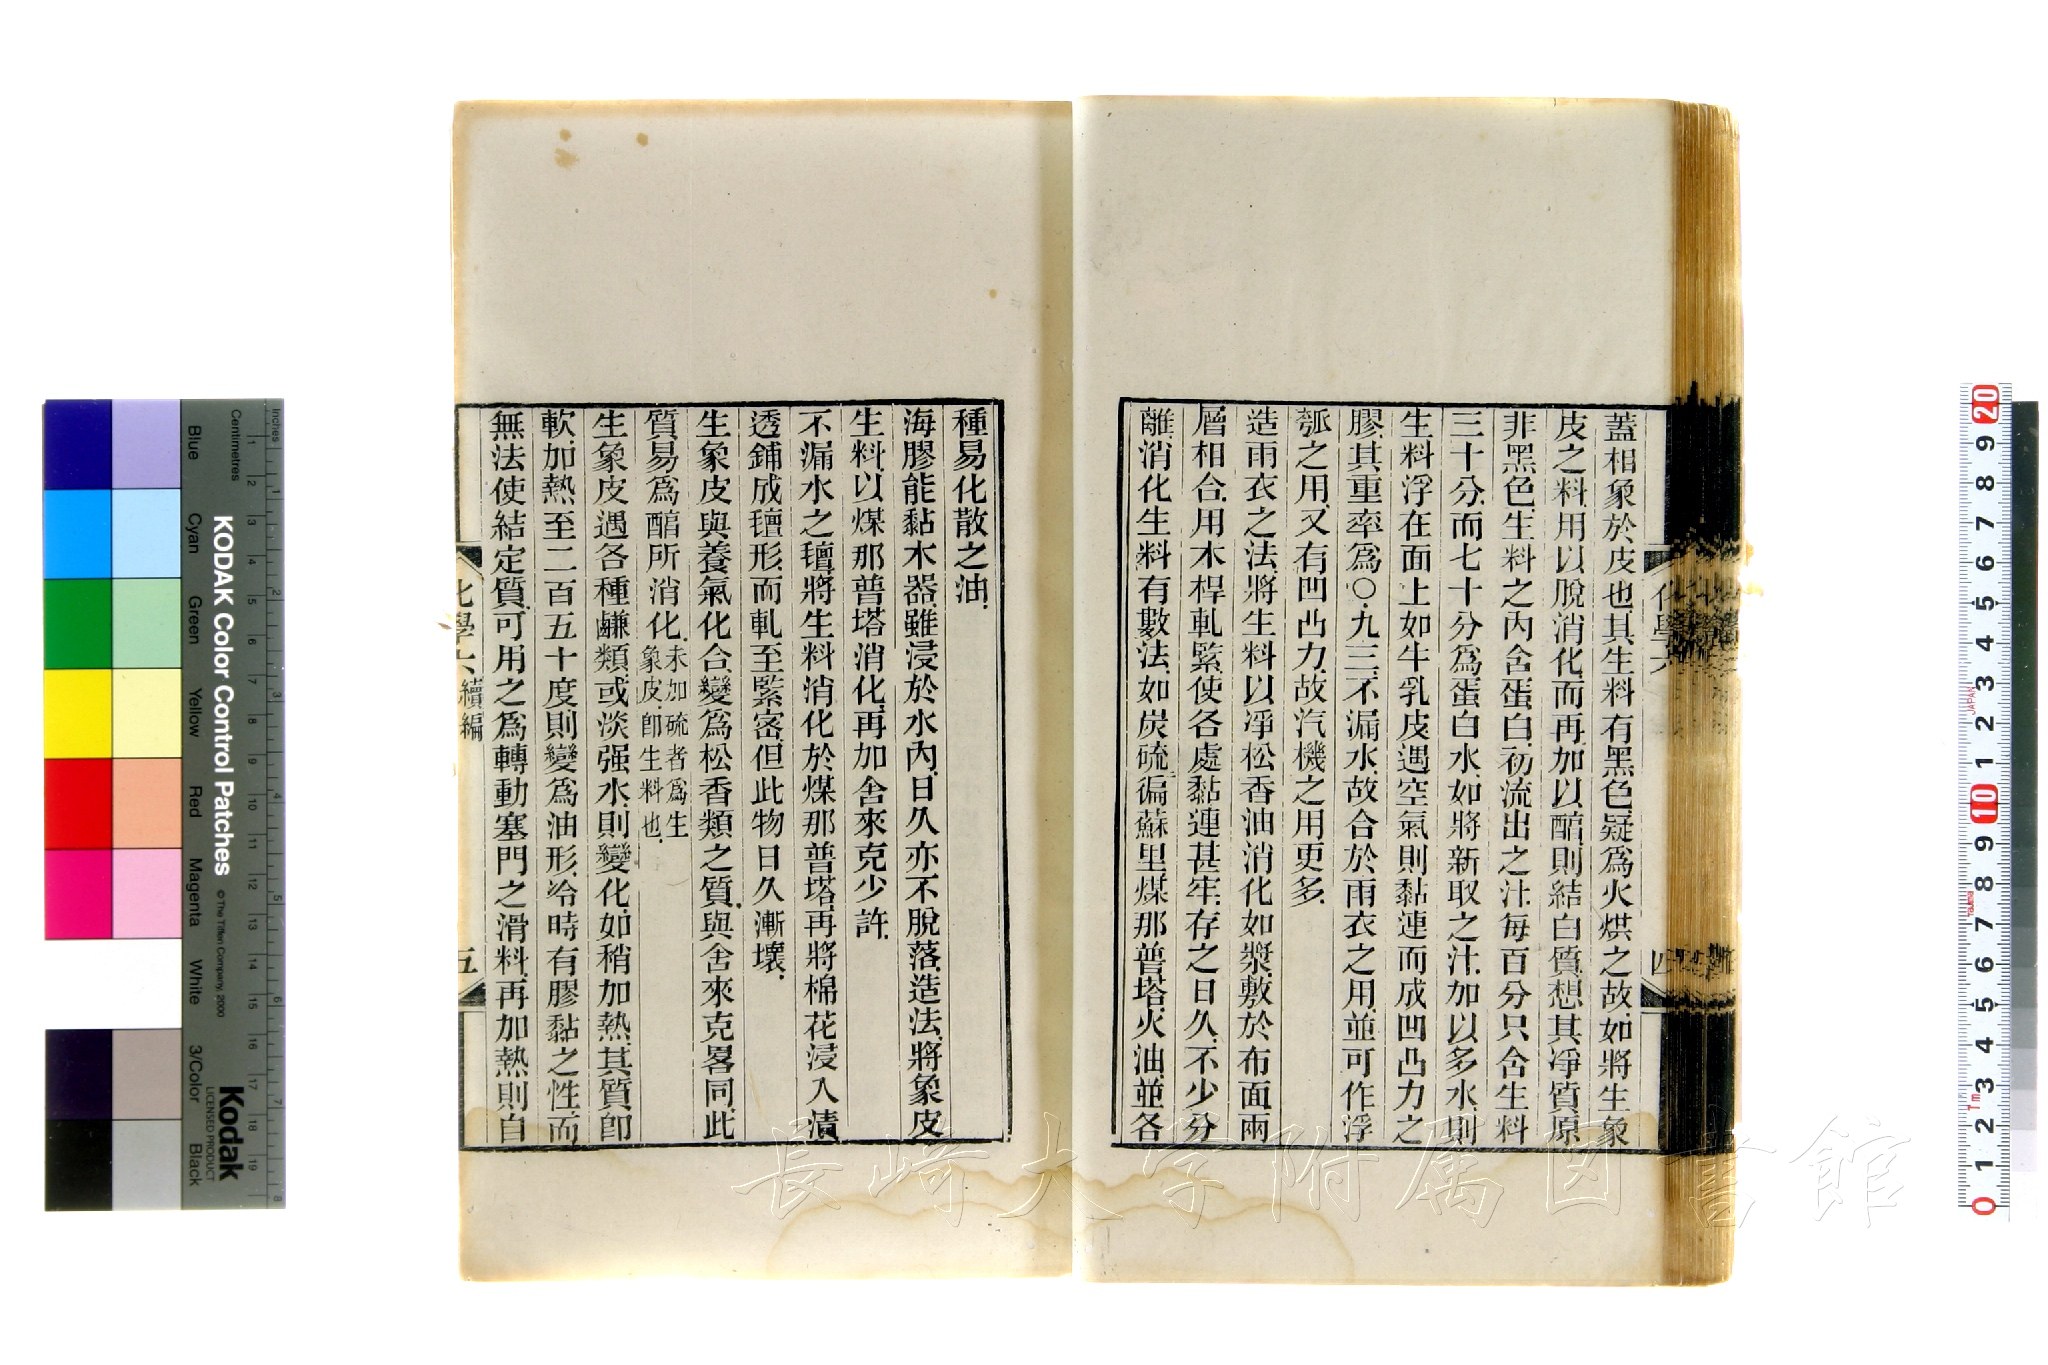 蓋相象於皮也其生料有黑色疑爲火烘之故如將生象
皮之料用以脫消化而再加以醕則結白質想其凈質原
非黑色生料之內含蛋白初流出之汁每百分只含生料
三十分而七十分爲蛋白水如將新取之汁加以多水則
生料浮在面上如牛乳皮遇空氣則黏連而成凹凸力之
膠其重率爲〇九三不漏水故合於雨衣之用並可作浮
瓠之用又有凹凸力故汽機之用更多
造雨衣之法將生料以凈松香油消化如漿敷於布面兩
層相合用木桿軋緊使各處黏連甚牢存之日久不少分
離消化生料有數法如炭硫徧蘇里煤那普塔火油並各
化學六
四
種易化散之油
海膠能黏木器雖浸於水內日久亦不脫落造法將象皮
生料以煤那普塔消化再加舍來克少許
不漏水之氊將生料消化於煤那普塔再將棉花浸入漬
透鋪成氊形而軋至緊密但此物日久漸壞
生象皮與養氣化合變爲松香類之質與舍來克畧同此
質易爲醕所消化未加硫者爲生
象皮卽生料也
生象皮遇各種鹻類或淡强水則變化如稍加熱其質卽
軟加熱至二百五十度則變爲油形冷時有膠黏之性而
無法使結定質可用之爲轉動塞門之滑料再加熱則自
化學六
續編
五
Inches
Centimetres
Blue
Cyan
Green
Yellow
Red
Magenta
White
3/Color
Black
KODAK Color Control Patches
© The Tiffen Company, 2000
Kodak
LICENSED PRODUCT
長崎大学附属図書館
JAPAN